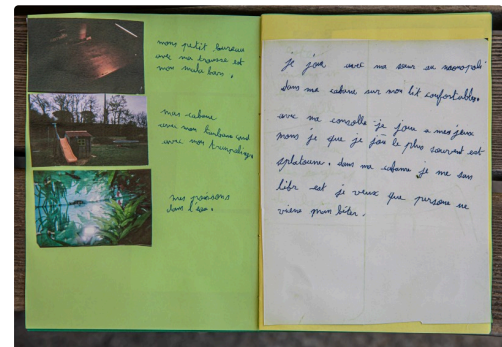 mons petit bureau
avec ma trousse est
mon
mes cabane
avec mon
avec mon trampoling.
mes poissons
dans l'eau.
je joue avec ma sœur au monopoli
dans ma cabane sur mon lit confortables.
avec ma consolle je joue a mes jeux
mons je que je jos le plus souvent est
splatoune. dans ma cabane je me sans
libr est je veux que persone ne
viene mon bêter.